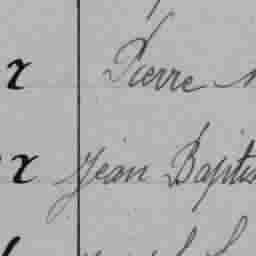 r Pierre
r Jean Baptis